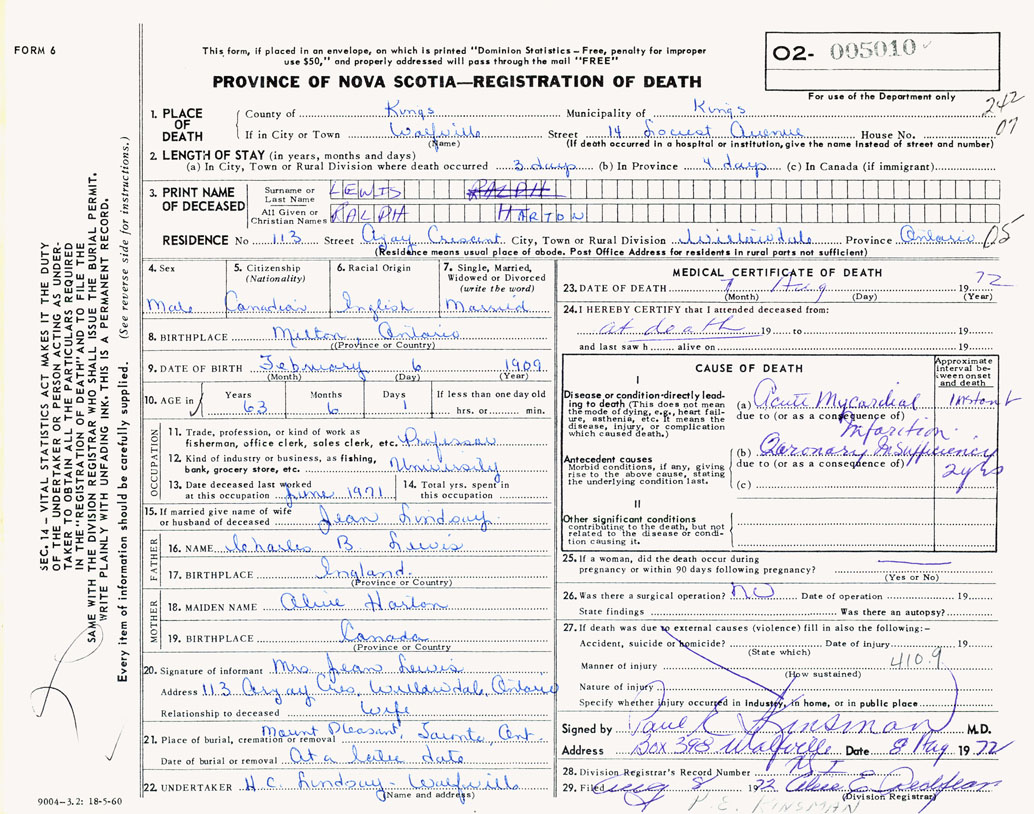 FORM 6
This form, if placed in an envelope, on which is printed "Dominion Statistics – Free, penalty for improper
use $50," and properly addressed will pass through the mail "FREE"
PROVINCE OF NOVA SCOTIA—REGISTRATION OF DEATH
O2- 005010
For use of the Department only
242
07
1. PLACE OF DEATH
County of Kings Municipality of Kings
If in City or Town Wolfville Street 14 Locust Avenue House No.
(Name) (If death occurred in a hospital or institution, give the name instead of street and number)
2. LENGTH OF STAY (in years, months and days)
(a) In City, Town or Rural Division where death occurred 3 days (b) In Province 4 days (c) In Canada (if immigrant)
3. PRINT NAME OF DECEASED
Surname or Last Name LEWIS RALPH
All Given or Christian Names RALPH HARTON
RESIDENCE No 113 Street Street City, Town or Rural Division Willowdale Province Ontario 05
(Residence means usual place of abode. Post Office Address for residents in rural parts not sufficient)
4. Sex
Male
5. Citizenship
(Nationality)
Canadian
6. Racial Origin
English
7. Single, Married,
Widowed or Divorced
(write the word)
Married
8. BIRTHPLACE Milton, Ontario
(Province or Country)
9. DATE OF BIRTH February 6 1909
(Month) (Day) (Year)
10. AGE in
Years Months Days If less than one day old
63 6 1 hrs. or min.
OCCUPATION
11. Trade, profession, or kind of work as
fisherman, office clerk, sales clerk, etc. Professor
12. Kind of industry or business, as fishing,
bank, grocery store, etc. University
13. Date deceased last worked
at this occupation June 1971
14. Total yrs. spent in
this occupation
15. If married give name of wife
or husband of deceased Jean Lindsay
FATHER
16. NAME Charles B Lewis
17. BIRTHPLACE England.
(Province or Country)
MOTHER
18. MAIDEN NAME Alice Harton
19. BIRTHPLACE Canada
(Province or Country)
20. Signature of informant Mrs Jean Lewis
Address 113 Cres, Willowdale, Ontario
Relationship to deceased Wife
21. Place of burial, cremation or removal Mount Pleasant, Toronto, Ont.
Date of burial or removal At a later date
22. UNDERTAKER H.C. Lindsay - Wolfville
(Name and address)
MEDICAL CERTIFICATE OF DEATH
23. DATE OF DEATH 7 Aug 19 72
(Month) (Day) (Year)
24. I HEREBY CERTIFY that I attended deceased from:
at death 19 to 19
and last saw h alive on 19
CAUSE OF DEATH
Approximate
interval be-
tween onset
and death
I
Disease or condition directly lead-
ing to death (This does not mean
the mode of dying, e.g., heart fail-
ure, asthenia, etc. It means the
disease, injury, or complication
which caused death.)
(a) Acute Myocardial Instant
due to (or as a consequence of)
Infarction
Antecedent causes
Morbid conditions, if any, giving
rise to the above cause, stating
the underlying condition last.
(b) Coronary Insufficiency
due to (or as a consequence of) 2 yrs
(c)
II
Other significant conditions
contributing to the death, but not
related to the disease or condi-
tion causing it.
25. If a woman, did the death occur during
pregnancy or within 90 days following pregnancy?
(Yes or No)
26. Was there a surgical operation? NO Date of operation 19
State findings Was there an autopsy?
27. If death was due to external causes (violence) fill in also the following:–
Accident, suicide or homicide? Date of injury 19
(State which)
410.9
Manner of injury
(How sustained)
Nature of injury
Specify whether injury occurred in Industry, in home, or in public place
Signed by Paul E Kinsman M.D.
Address Box 398 Wolfville Date 8 Aug 19 72
28. Division Registrar's Record Number
29. Filed Aug 8 1972 E
(Division Registrar)
P. E. KINSMAN
9004–3.2: 18-5-60
SEC. 14 – VITAL STATISTICS ACT MAKES IT THE DUTY
OF THE UNDERTAKER OR PERSON ACTING AS UNDER-
TAKER TO OBTAIN ALL THE PARTICULARS REQUIRED
IN THE "REGISTRATION OF DEATH" AND TO FILE THE
SAME WITH THE DIVISION REGISTRAR WHO SHALL ISSUE THE BURIAL PERMIT.
WRITE PLAINLY WITH UNFADING INK. THIS IS A PERMANENT RECORD.
Every item of information should be carefully supplied. (See reverse side for instructions.)